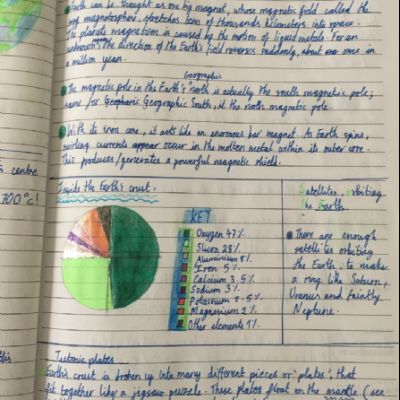 Earth can be thought as one big magnet, whose magnetic field called the
magnetosphere, stretches tens of thousands kilometers into space.
The planets magnetism is caused by the motion of liquid metals. For an
unknown, the direction of the Earth's field reverses randomly, about once in
a million year.
Geographic
The magnetic pole in the Earth's north is actually the south magnetic pole;
same for Geographic South, it the north magnetic pole.
With its iron core, it acts like an enormous bar magnet. As Earth spins,
swirling currents appear occur in the molten metal within its outer core.
This produces/generates a powerful magnetic shield.
centre
700°c!
Inside the Earth's crust.
KEY
Oxygen 47%
Silicon 28%
Aluminium 8%
Iron 5%
Calcium 3.5%
Sodium 3%
Potassium 2.5%
Magnesium 2%
Other elements 1%
Satellites orbiting
the Earth
There are enough
satellites orbiting
the Earth, to make
a ring like Saturn,
Uranus and faintly
Neptune.
this
Tectonic plates
Earth's crust is broken up into many different pieces or 'plates', that
fit together like a jigsaw puzzle. These plates float on the mantle (see